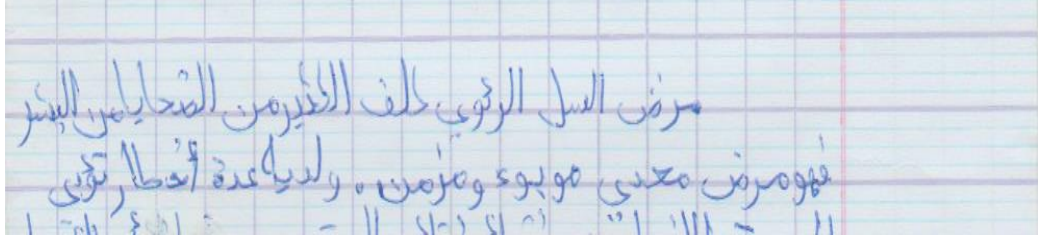 مرض السل الرئوي خلف الكثير من الضحايا من البشر
فهو مرض معدي موبوء ومزمن. ولديه عدة أخطار تؤدي